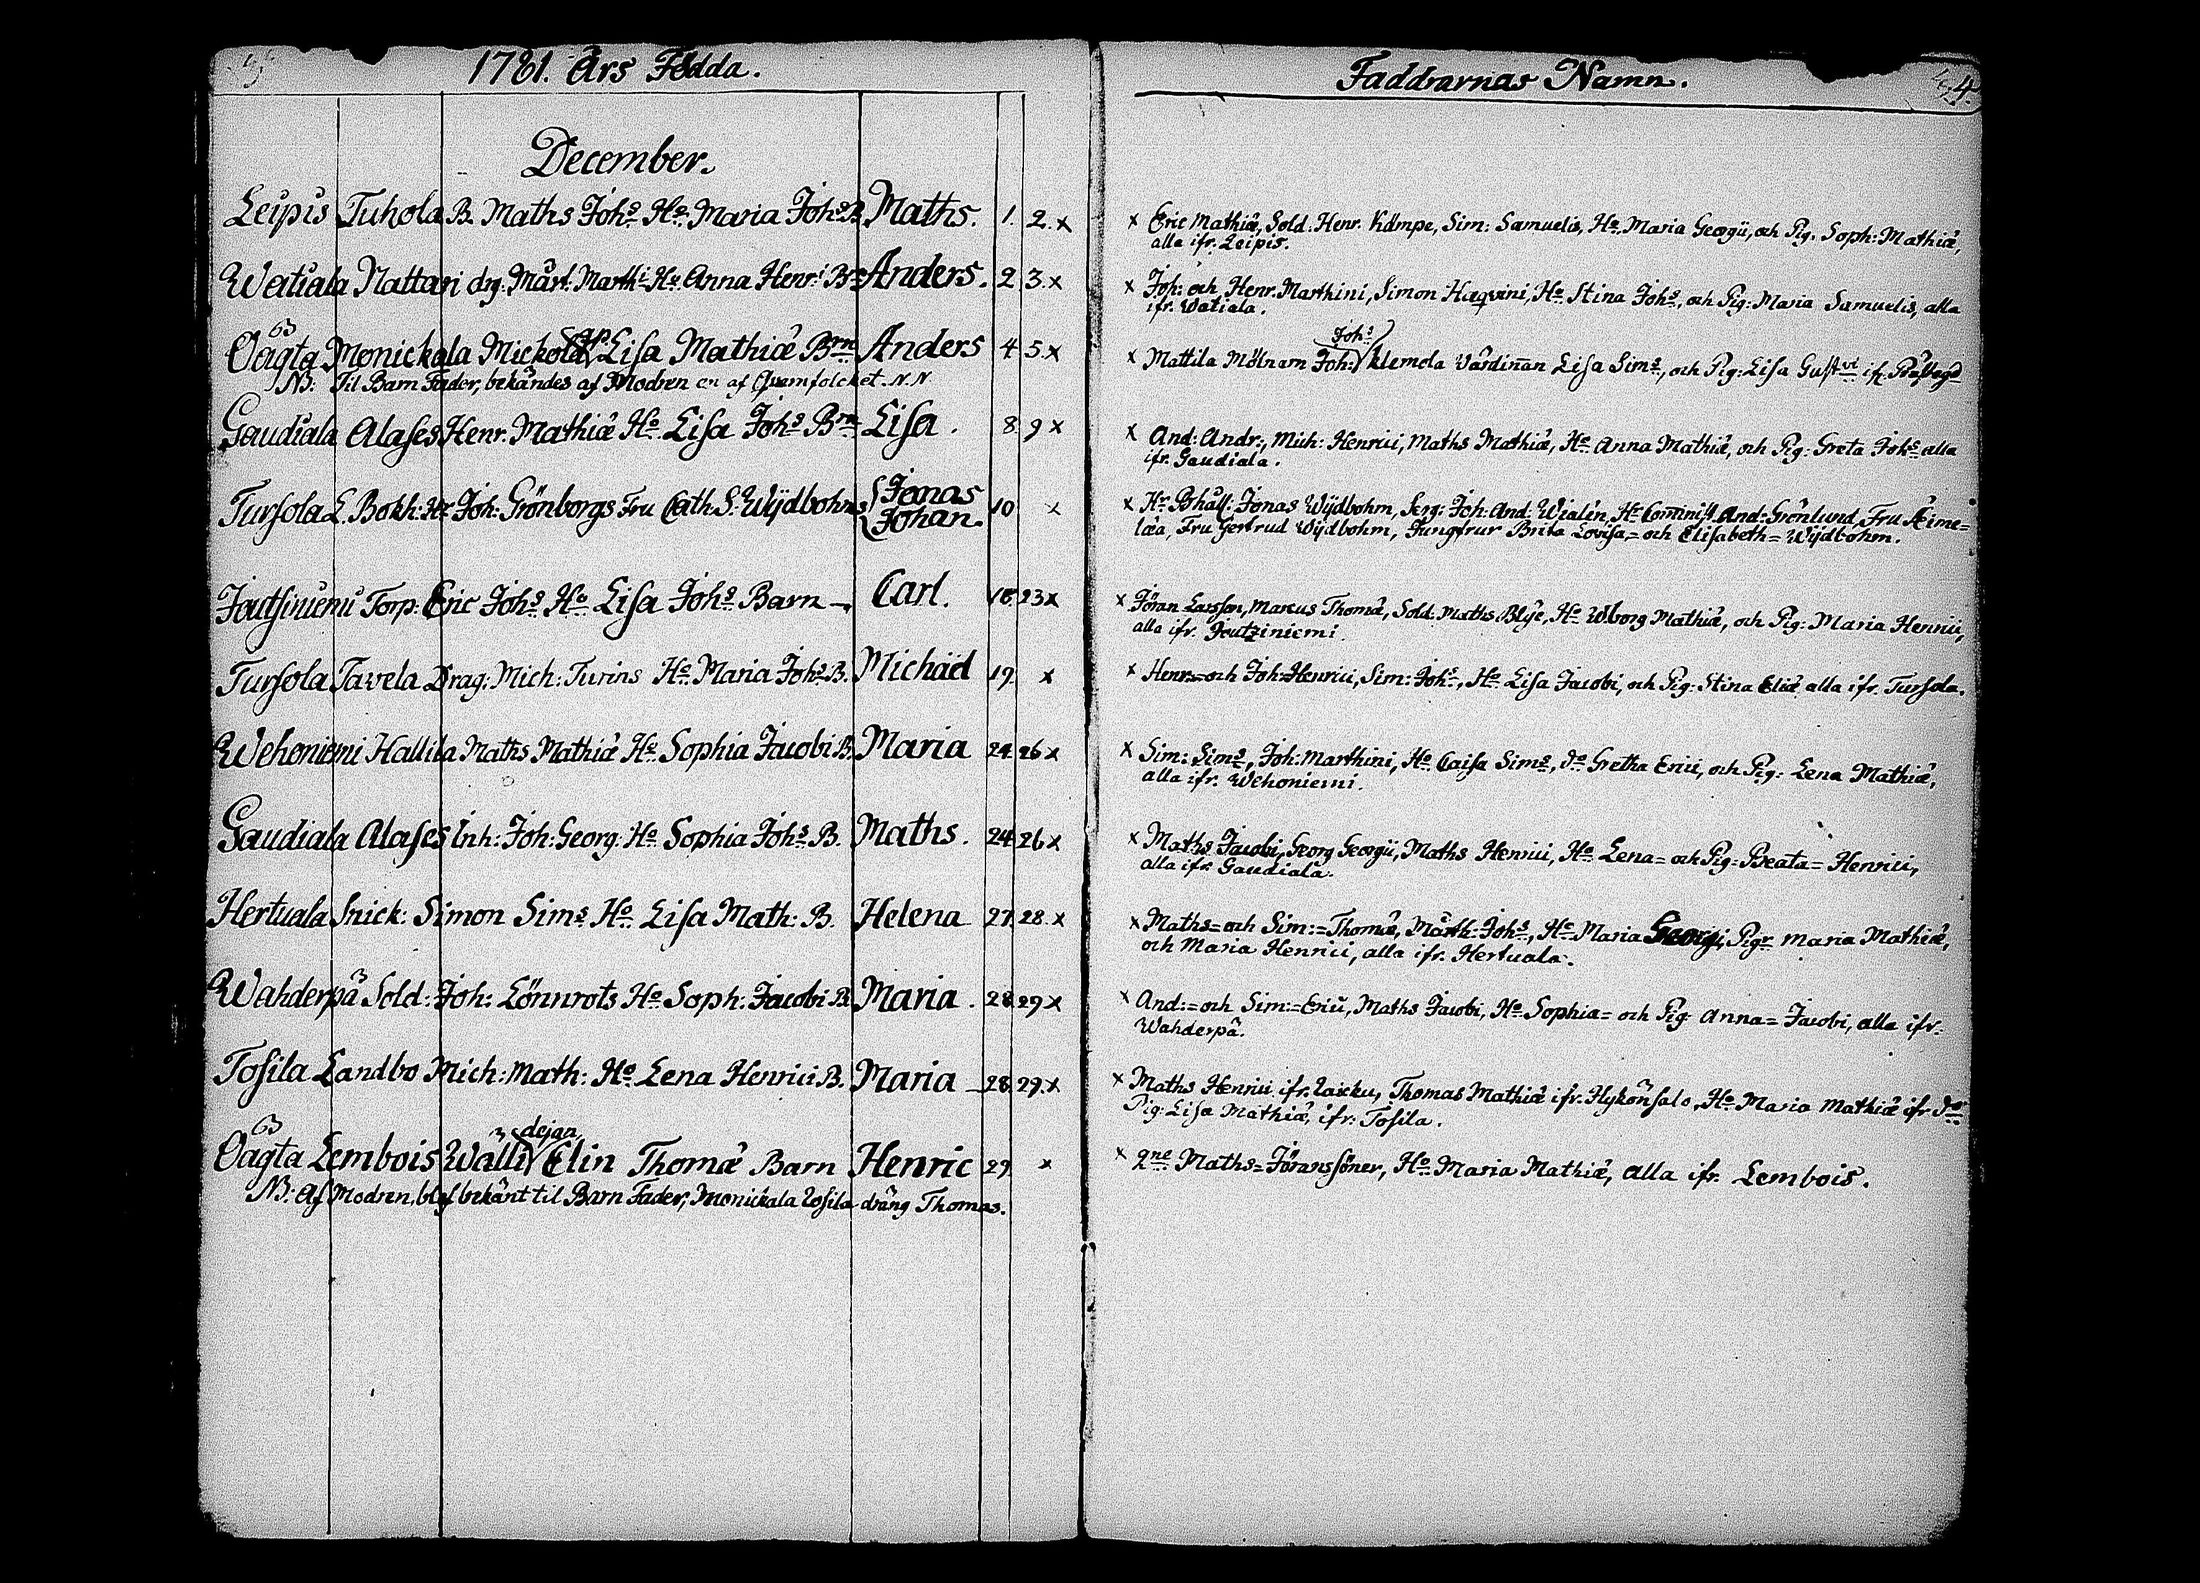 1781. Års Födda.
December.
Leipis Tuhola B. Maths Johs. Ho. Maria Johs. B. Maths. 1. 2. x
Watiala Nattari drg: Mårt: Marthi Ho. Anna Henri: Brn Anders. 2 3. x
Oägta Monickala Mickola Lisa Mathiæ Brn Anders 4 5. x
NB: Til Barn Fader, bekändes af Modren en af Qvarnfolcket. N.N
Gaudiala Alases Henr. Mathiæ Ho. Lisa Johs. Brn Lisa. 8 9 x
Tursola L. Bokh: Joh: Grönborgs Fru Cath. S. Wijdbohms { Jonas Johan. 10 x
Joutsiniemi Torp: Eric Johs. Ho. Lisa Johs. Barn Carl. 18. 23 x
Tursola Tavela Drag: Mich: Turins Ho. Maria Johs. B. Michäel 19. x
Wehoniemi Hallila Maths Mathiæ Ho. Sophia Jacobi B. Maria 24 26 x
Gaudiala Alases Inh: Joh: Georg: Ho. Sophia Johs. B. Maths. 24 26 x
Hertuala Snick: Simon Sims. Ho. Lisa Math: B. Helena 27. 28. x
Wahderpä Sold: Joh: Lönnrots Ho. Soph: Jacobi B. Maria. 28 29 x
Tosila Landbo Mich: Math: Ho. Lena Henrici B. Maria 28. 29. x
dejan
Oägta Lembois Walli Elin Thomæ Barn Henric 29. x
NB: Af Modren, blef bekänt til Barn Fader, Monickala dräng Thomas.
Faddrarnas Namn. 4.
x Eric Mathiæ, Sold: Henr. Kämpe, Sim: Samuelis, Ho. Maria Georgii, och Pig. Soph: Mathiæ,
alla ifr. Leipis.
x Joh: och Henr. Marthini, Simon Haqvini, Ho. Stina Johs., och Pig: Maria Samuelis, alla
ifr. Watiala.
Johs.
x Mattila Mölnarn Joh: Klemola Värdinnan Lisa Sims., och Pig: Lisa Gustvi ifr. Prästegd
x And: Andr:, Mich: Henrici, Maths Mathiæ, Ho. Anna Mathiæ, och Pig: Greta Johs. alla
ifr. Gaudiala.
x Hr. Bhåll: Jonas Wijdbohm, Serg: Joh: And: Wialén, Hr. And: Grönlund, Fru Æime=
læa, Fru Gertrud Wijdbohm, Jungfrur Brita Lovisa,= och Elisabeth= Wijdbohm.
x Jöran Larsson, Marcus Thomæ, Sold: Maths Blÿe, Ho. Wborg Mathiæ, och Pig: Maria Henrici,
alla ifr. Joutziniemi.
x Henr:= och Joh:= Henrici, Sim: Johs., Ho. Lisa Jacobi, och Pig: Stina Eliæ, alla ifr. Tursola.
x Sim: Sims., Joh: Marthini, Ho. Caisa Sims., do. Gretha Erici, och Pig: Lena Mathiæ,
alla ifr. Wehoniemi.
x Maths Jacobi, Georg Georgii, Maths Henrici, Ho. Lena= och Pig: Beata= Henrici,
alla ifr. Gaudiala.
x Maths= och Sim:= Thomæ, Marth: Johs., Ho. Maria Georgi, Pigr. Maria Mathiæ,
och Maria Henrici, alla ifr. Hertuala.
x And:= och Sim:= Erici, Maths Jacobi, Ho. Sophia= och Pig: Anna= Jacobi, alla ifr.
Wahderpä.
x Maths Henrici ifr. Thomas Mathiæ ifr. Hykönsalo, Ho. Maria Mathiæ ifr do.
Pig: Lisa Mathiæ, ifr: Tosila.
x 2ne Maths= Jöranssöner, Ho. Maria Mathiæ, alla ifr. Lembois.